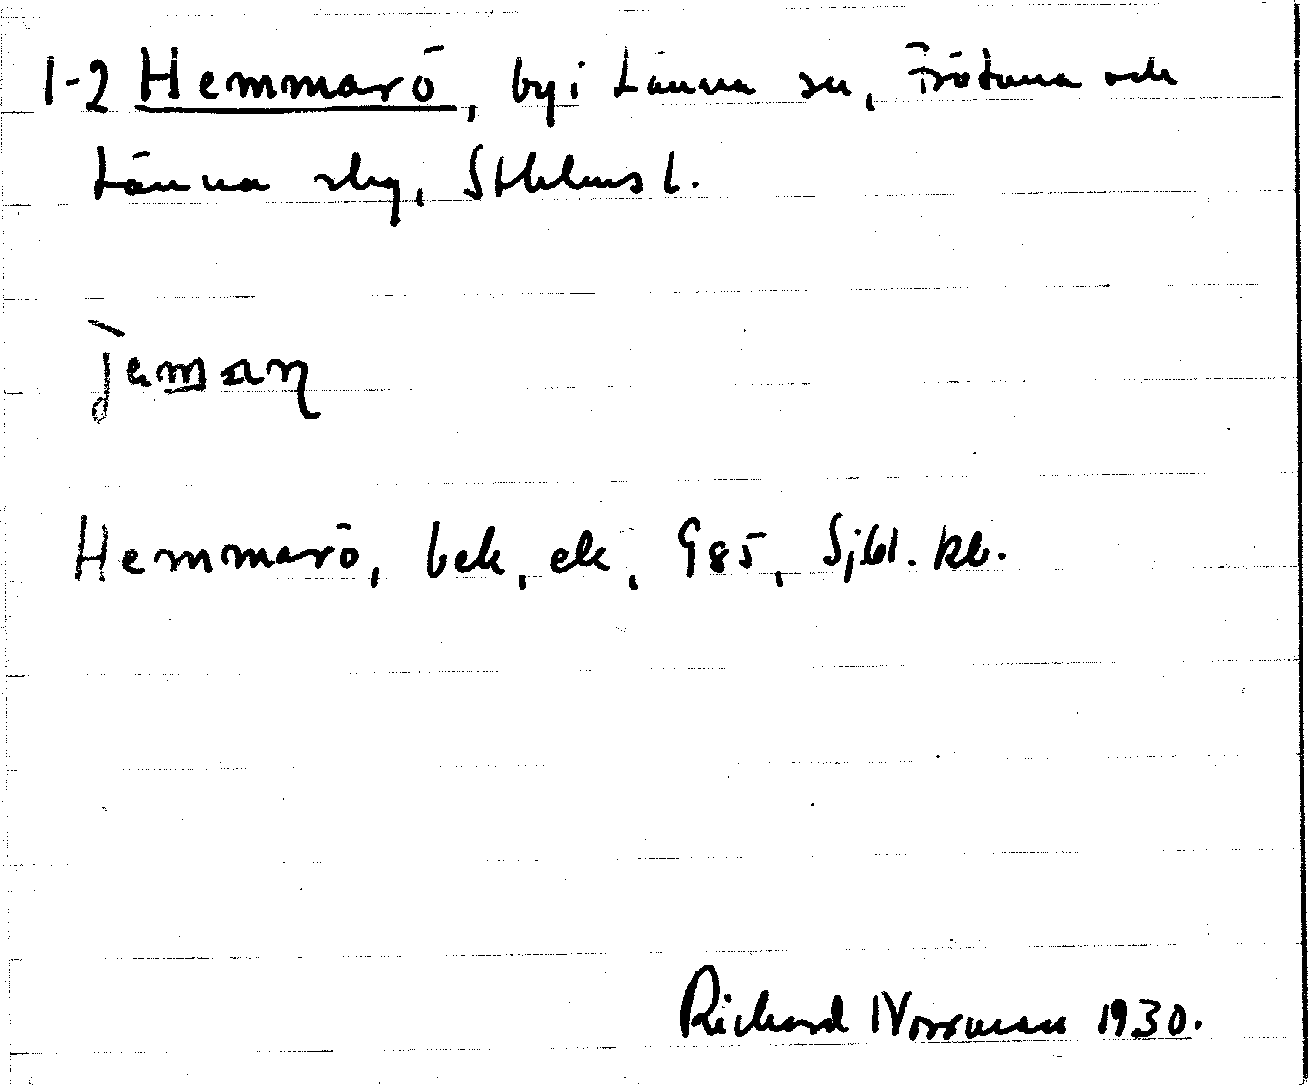 1-2 Hemmarö, by i Länna sn, Frötuna och
Länna skg, Sthlms l.
Hemmarö, bek, ek, 985, Sjbl. kb.
Richard Norrman 1930.